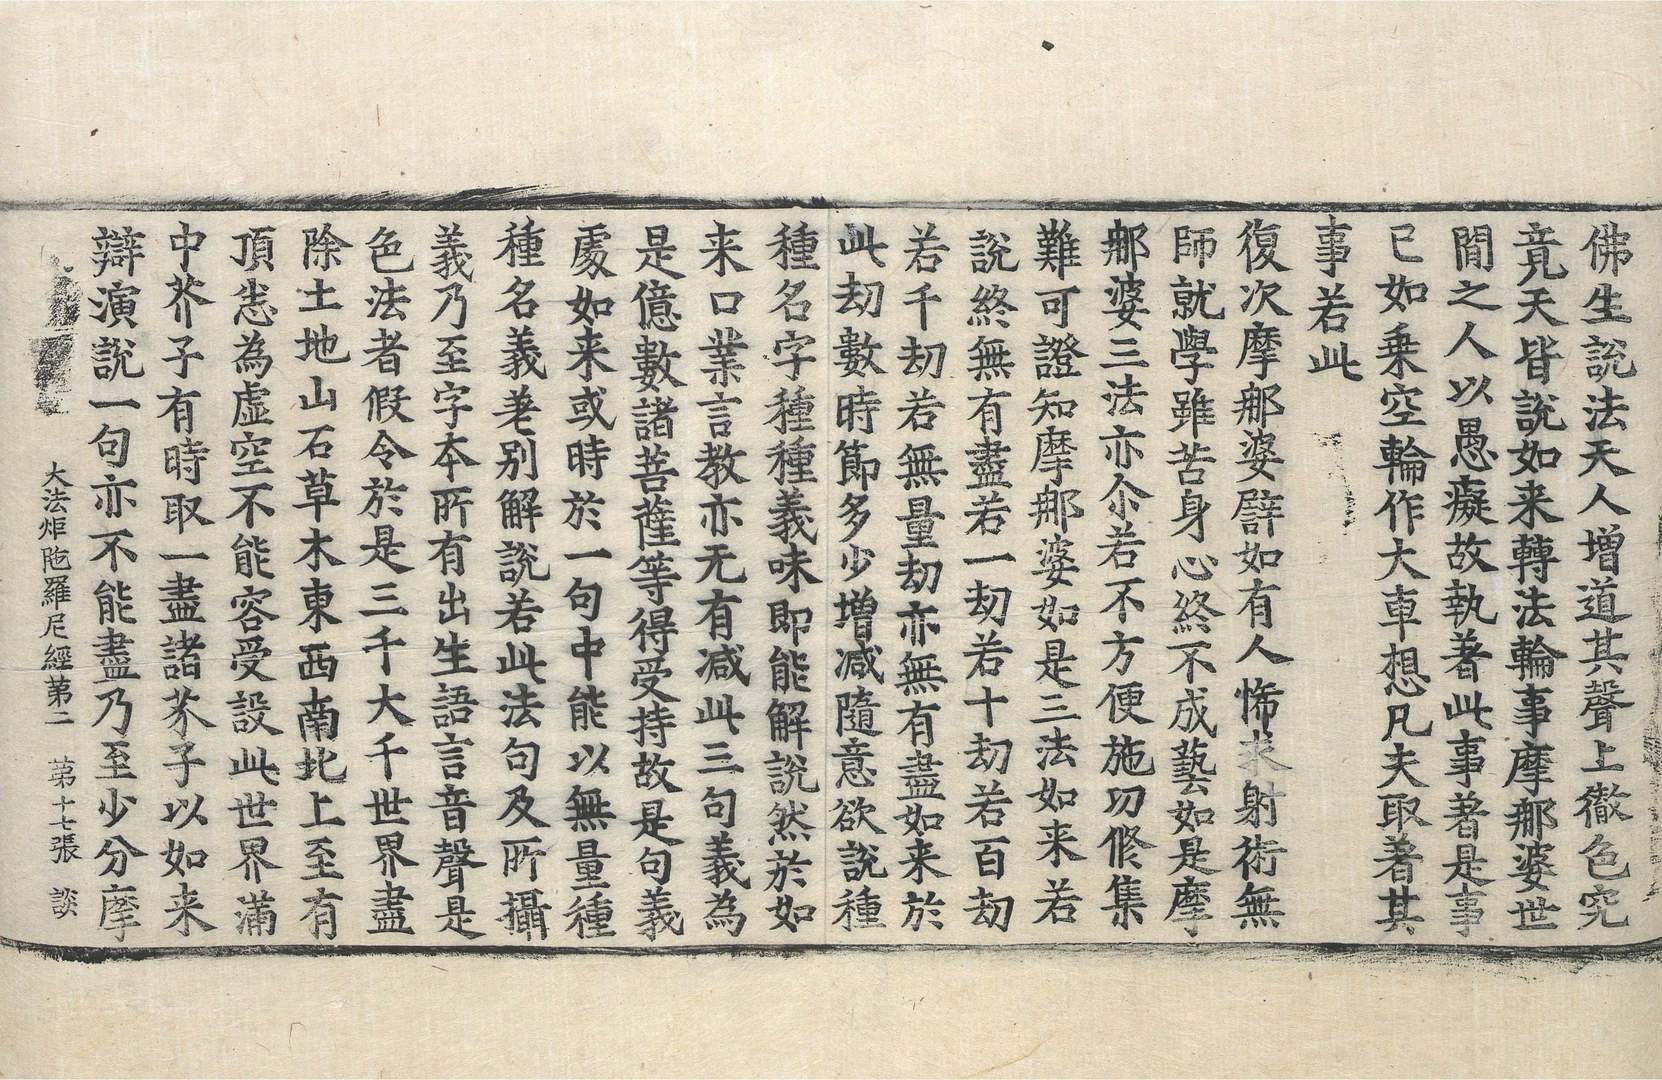 佛生說法天人增道其聲上徹色究
竟天皆說如来轉法輪事摩那婆世
閒之人以愚癡故執著此事著是事
已如乗空輪作大車想凡夫取著其
事若此
復次摩那婆譬如有人怖求射術無
師就學雖苦身心終不成藝如是摩
那婆三法亦尒若不方便施功修集
難可證知摩那婆如是三法如来若
說終無有盡若一劫若十劫若百劫
若千劫若無量劫亦無有盡如来於
此劫數時節多少增减隨意欲說種
種名字種種義味即能解說然於如
来口業言教亦无有减此三句義為
是億數諸菩薩等得受持故是句義
處如来或時於一句中能以無量種
種名義差别解說若此法句及所攝
義乃至字本所有出生語言音聲是
色法者假令於是三千大千世界盡
除土地山石草木東西南北上至有
頂悉為虛空不能容受設此世界滿
中芥子有時取一盡諸芥子以如来
辯演說一句亦不能盡乃至少分摩
大法炬陁羅尼經苐二 苐十七張 談